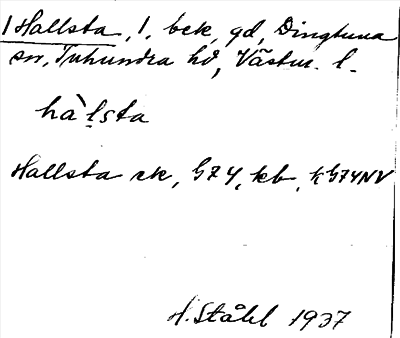 1 Hallsta, 1, bek, gd, Dingtuna
sn, Tuhundra hd, Västm. l.
hàl̤sta
Hallsta ek, G74, kb, k G74NV
H. Ståhl 1937